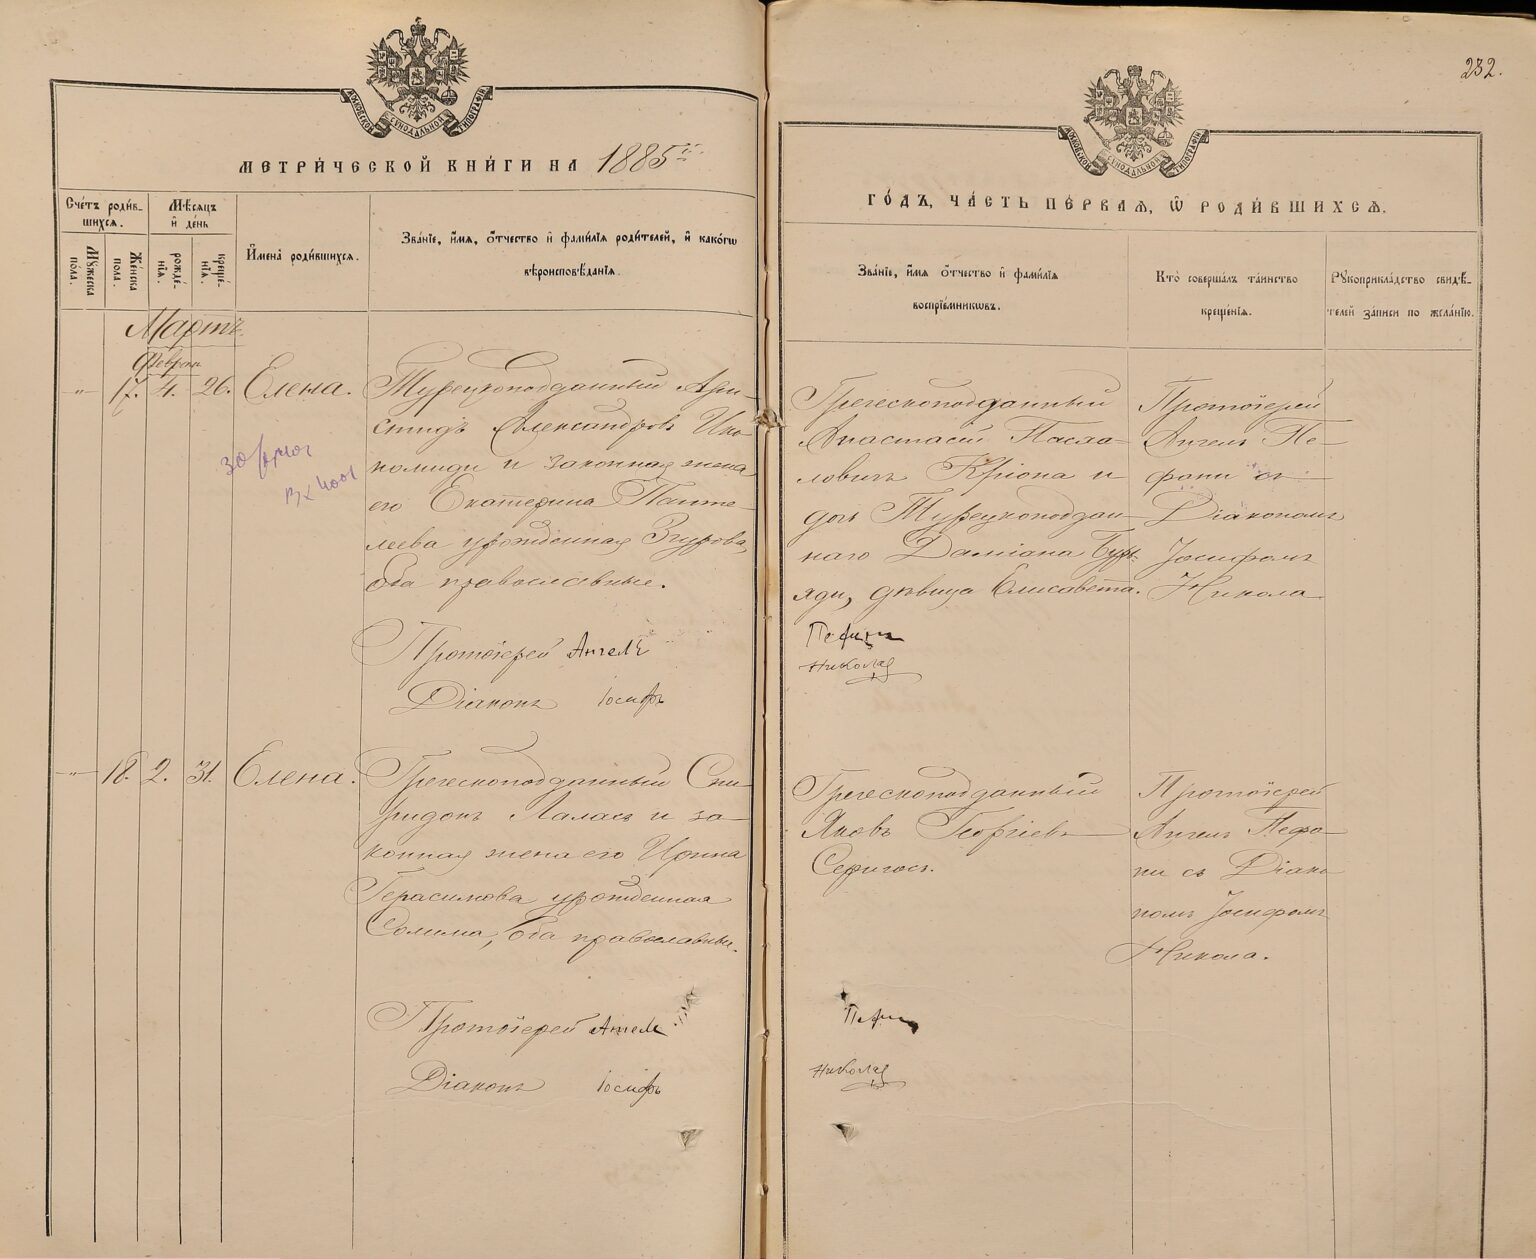 232.
МОСКОВСКОЙ СѴНОДАЛЬНОЙ ТИПОГРАФІИ
МЕТРИ́ЧЕСКОЙ КНИ́ГИ НА 1885й
МОСКОВСКОЙ СѴНОДАЛЬНОЙ ТИПОГРАФІИ
ГО́ДЪ, ЧА́СТЬ ПЕ́РВАЯ, Ѡ РОДИ́ВШИХСЯ.
Сче́тъ роди́вшихся.
Мꙋжеска пола.
Же́нска пола.
Мѣ́сяцъ и҆ де́нь
рожде́нїя.
креще́нїя.
И҆мена̀ роди́вшихся.
Зва́нїе, и҆́мя, ѻ҆́тчество и҆ фами́лїя роди́телей, и҆ како́гѡ
вѣроисповѣ́данїя.
Зва́нїе, и҆́мя ѻ҆́тчество и҆ фами́лїя
воспрїе́мникѡвъ.
Кто̀ соверша́лъ та́инство
креще́нїя.
Рꙋкоприкла́дство свидѣ́-
телей за́писи по жела́нїю.
Мартъ.
Феврал
" 17. 4. 26. Елена.
Турецкоподданный Ари-
стидъ Александровъ Ико-
номиди и законная жена
его Екатерина Панте-
леева урожденная Згурова,
Оба православные.
Протоіерей Ангелъ
Діаконъ Іосифъ
Греческоподданный
Анастасій Павло-
довичъ
дочь Турецкоподдан-
наго Даміана
яди, дѣвица Елисавета.
Пефани
Николая
Протоіерей
Ангелъ Пе-
фани съ
Діакономъ
Іосифомъ
Никола
вх 4001
" 18. 2. 31. Елена.
Греческоподданный Спи-
ридонъ Лаласъ и за-
конная жена его Ирина
Герасимова урожденная
Солима, Оба православные.
Протоіерей Ангелъ
Діаконъ Іосифъ
Греческоподданный
Яковъ Георгіевъ
Серигосъ.
Пефани
Николая
Протоіерей
Ангелъ Пефа-
ни съ Діако-
номъ Іосифомъ
Никола.